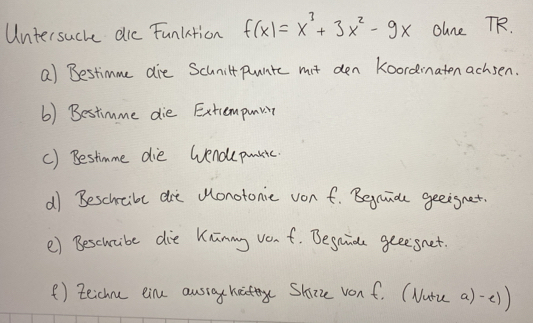 Untersuche die Funktion f(x) = x³ + 3x² - 9x ohne TR.
a) Bestimme die Schnittpunkte mit den Koordinatenachsen.
b) Bestimme die Extrempunkte
c) Bestimme die Wendepunkte.
d) Beschreibe die Monotonie von f. Begründe geeignet.
e) Beschreibe die Krümmung von f. Begründe geeignet.
f) Zeichne eine aussagekräftige Skizze von f. (Nutze a)-e))